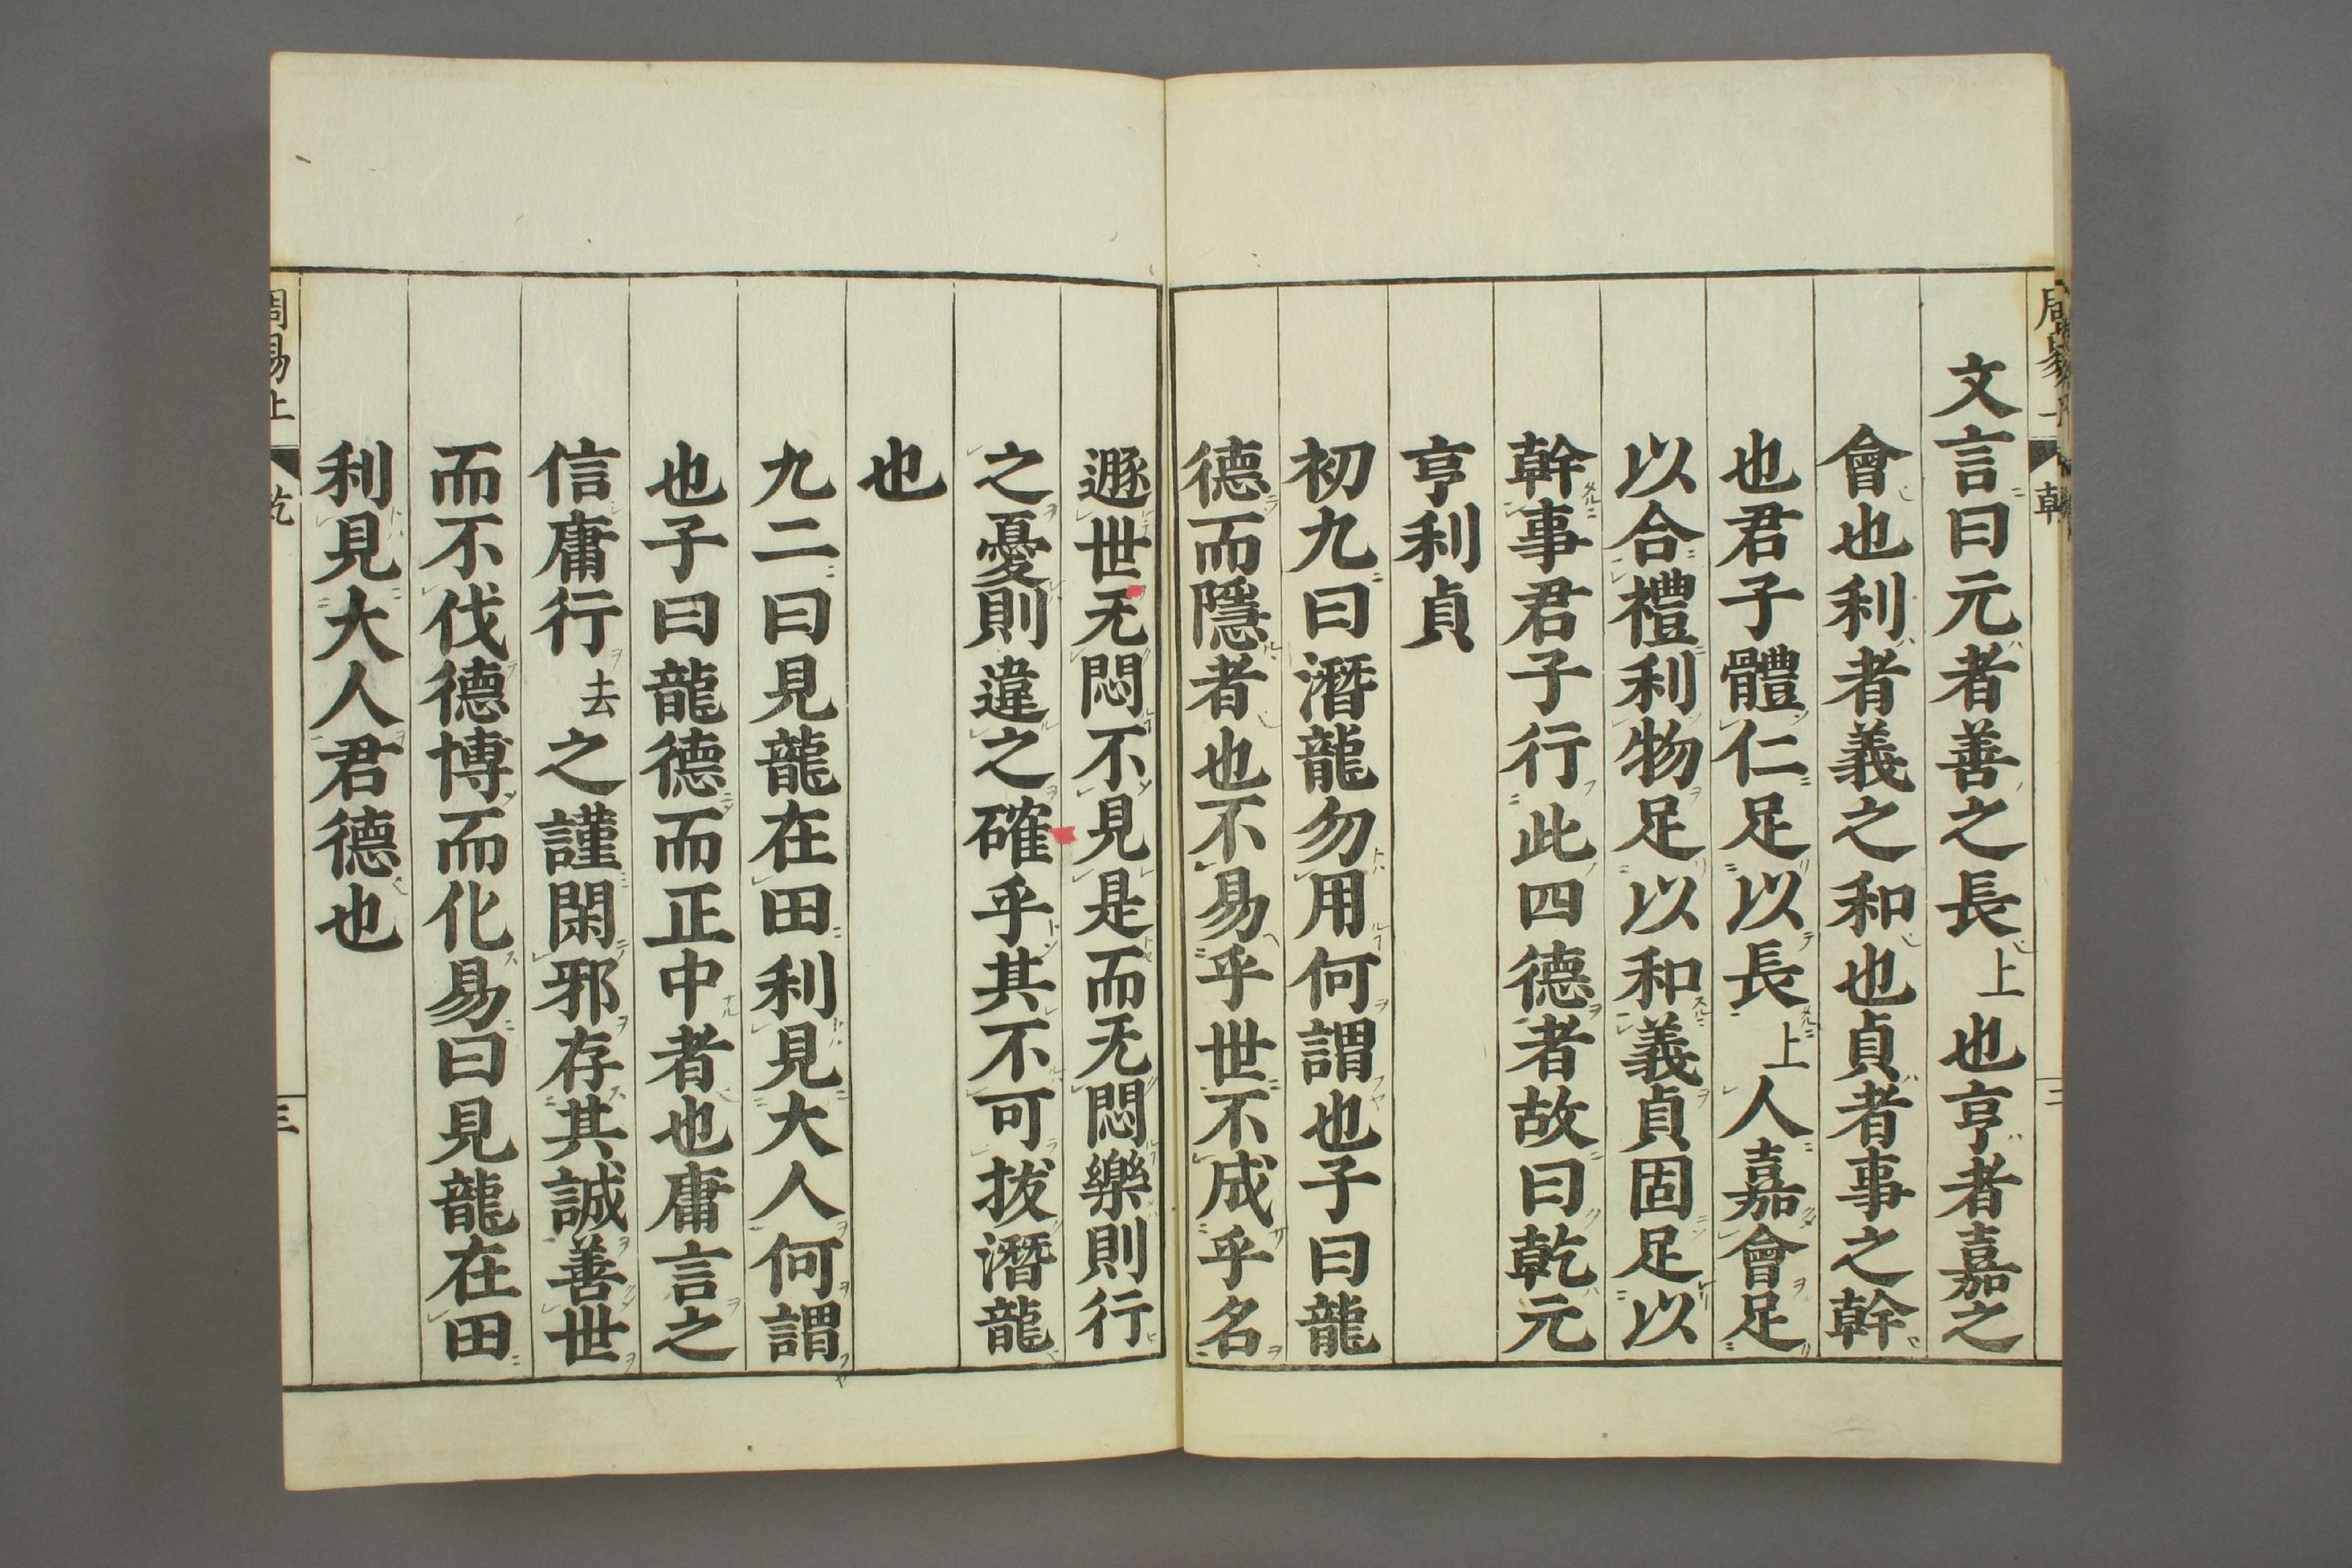 文言曰元者善之長上也亨者嘉之
會也利者義之和也貞者事之幹
也君子體仁足以長上人嘉會足
以合禮利物足以和義貞固足以
幹事君子行此四德者故曰乾元
亨利貞
初九曰潛龍勿用何謂也子曰龍
德而隱者也不易乎世不成乎名
遯世无悶不見是而无悶樂則行
之憂則違之確乎其不可拔潛龍
也
九二曰見龍在田利見大人何謂
也子曰龍德而正中者也庸言之
信庸行去之謹閑邪存其誠善世
而不伐德博而化易曰見龍在田
利見大人君德也
周易上 乾 三